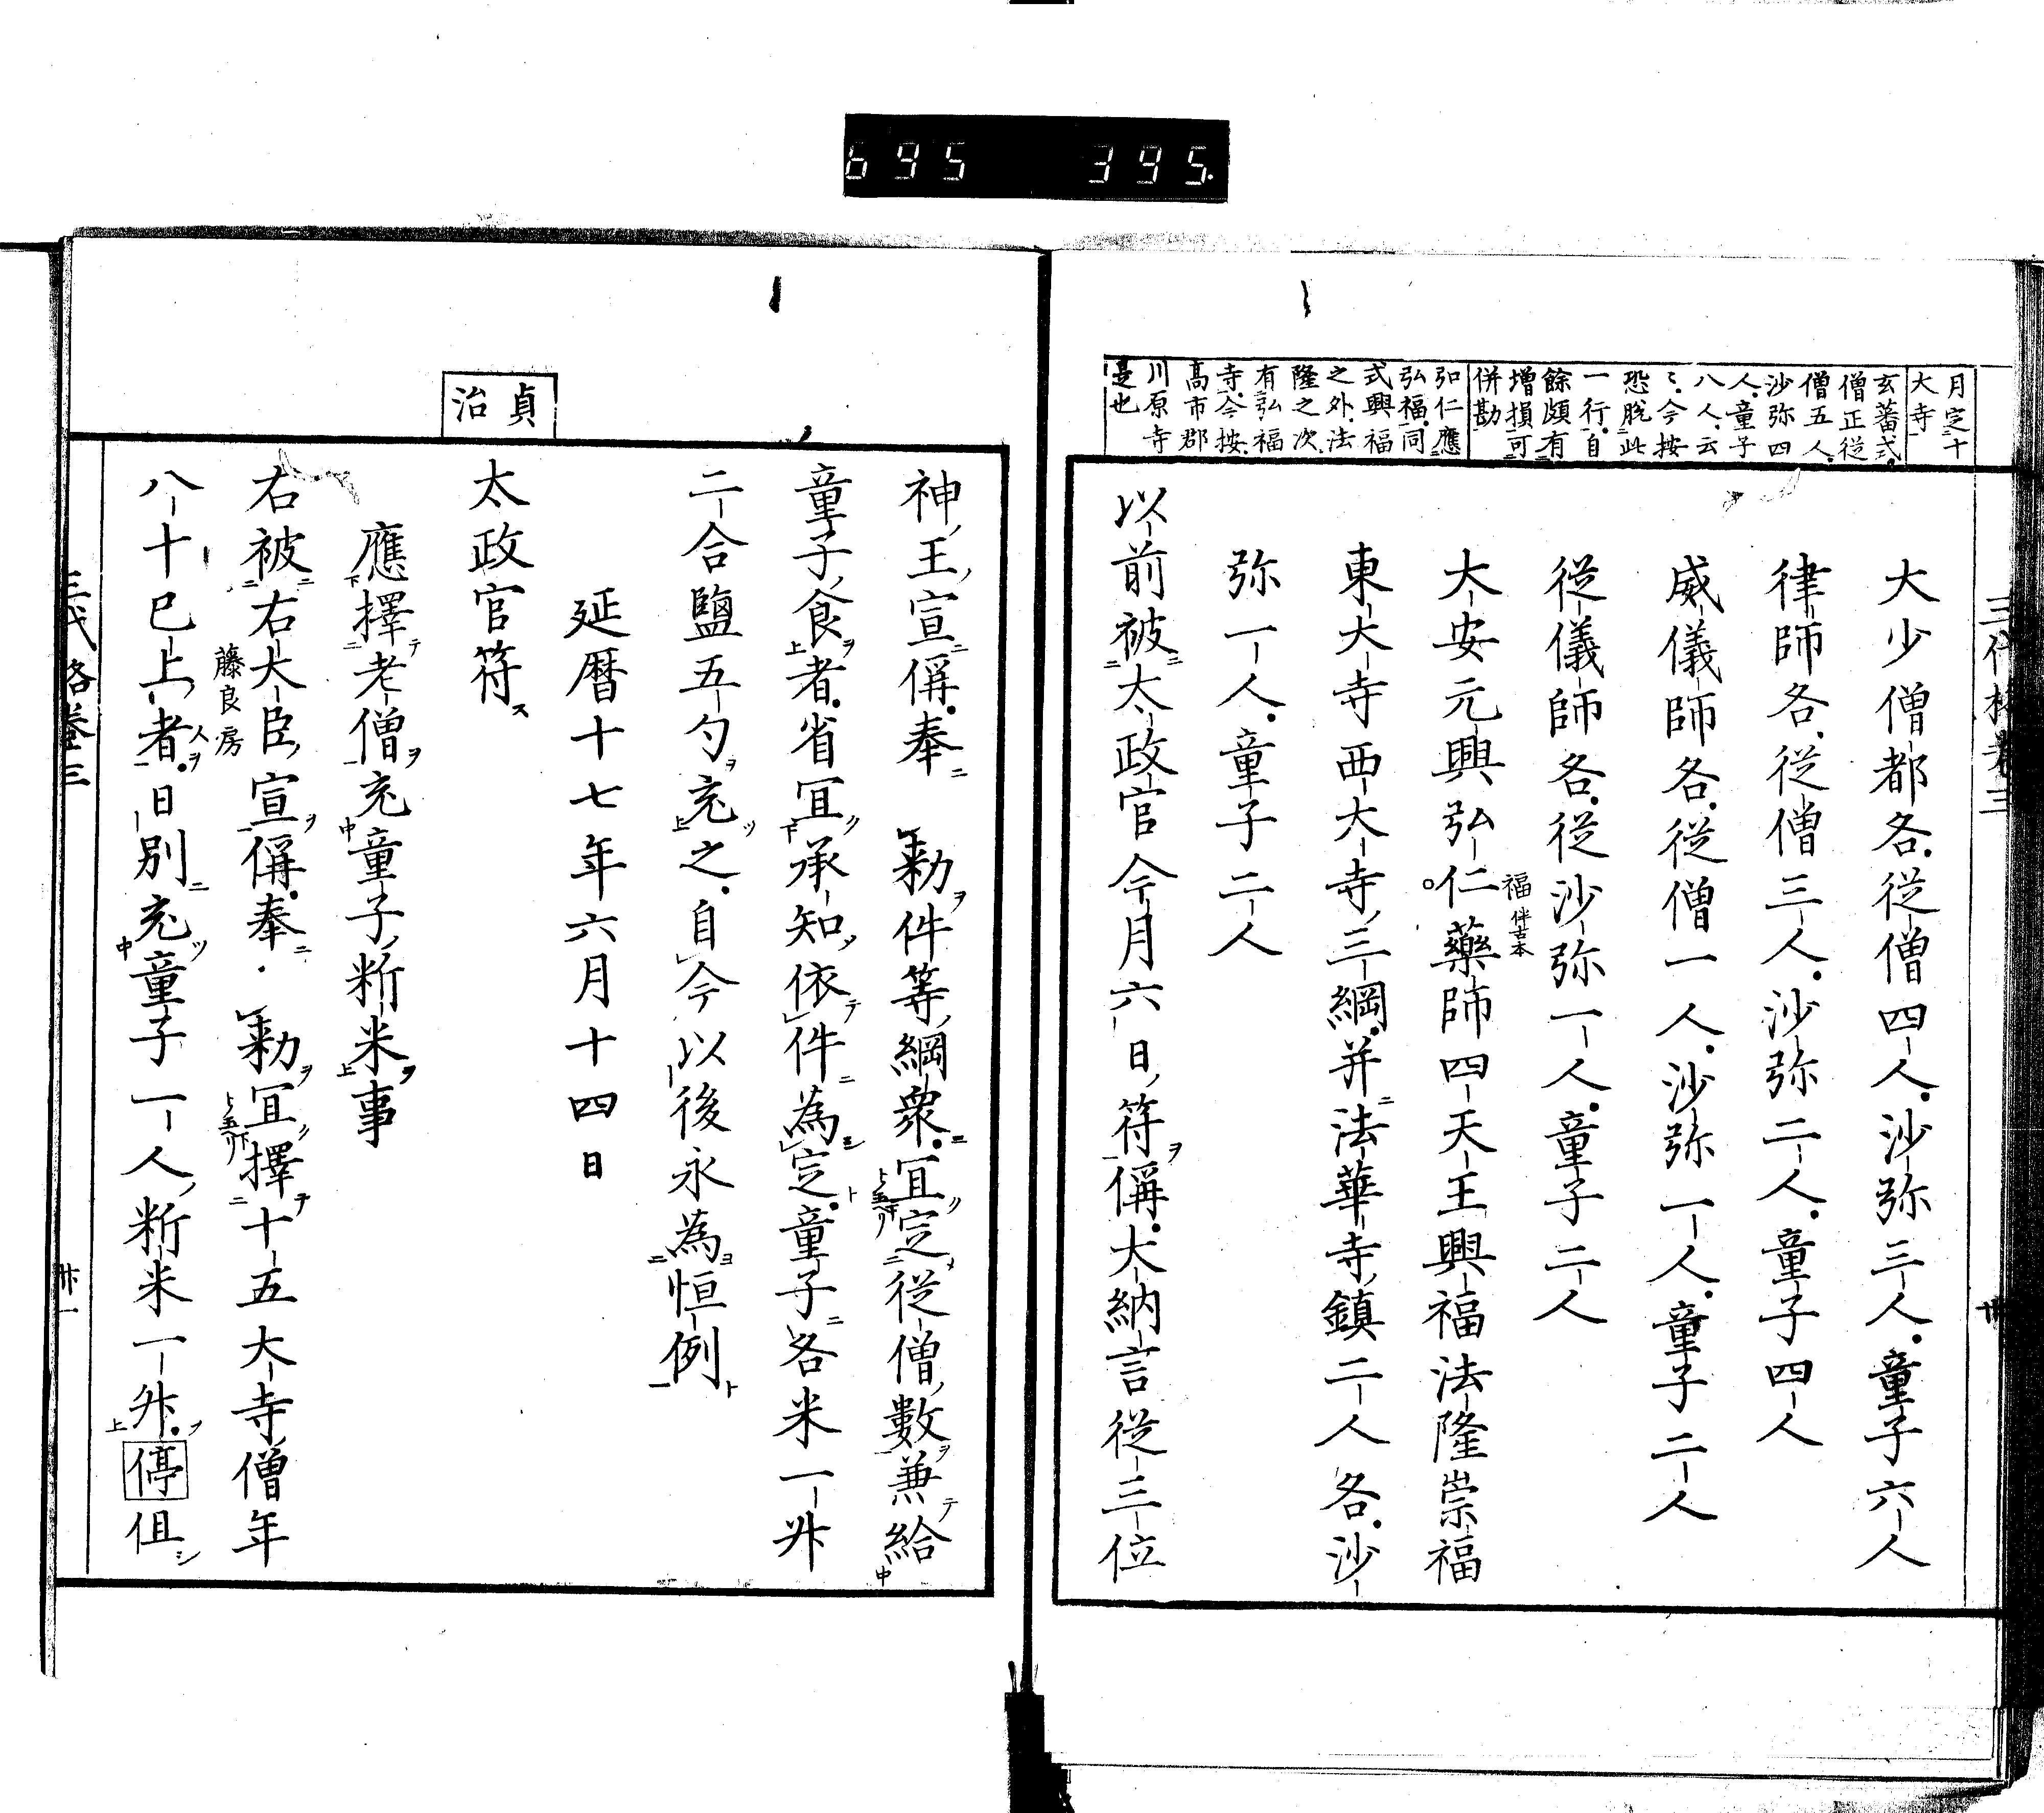 695 395.
月定十
大寺
玄蕃式
僧正從
僧五人
沙弥四
人童子
八人云
々今按
恐脱此
一行自
餘頗有
増損可
併勘
弘仁應
弘福同
式興福
之外法
隆之次
有弘福
寺今按
高市郡
川原寺
是也
大少僧都各從僧四人沙弥三人童子六人
律師各從僧三人沙弥二人童子四人
威儀師各從僧一人沙弥一人童子二人
從儀師各從沙弥一人童子二人
大安元興弘仁藥師四天王興福法隆崇福
福 伴古本
東大寺西大寺三綱并法華寺鎮二人各沙
弥一人童子二人
以前被太政官今月六日符偁大納言從三位
神王宣偁奉 勅件等綱衆宜定從僧數兼給
童子食者省宜承知依件為定童子各米一升
二合鹽五勺充之自今以後永為恒例
延暦十七年六月十四日
貞治
太政官符
應擇老僧充童子新米事
右被右大臣宣偁奉 勅宜擇十五大寺僧年
藤良房
八十已上者日別充童子一人新米一升停但
三代格卷三
卅一